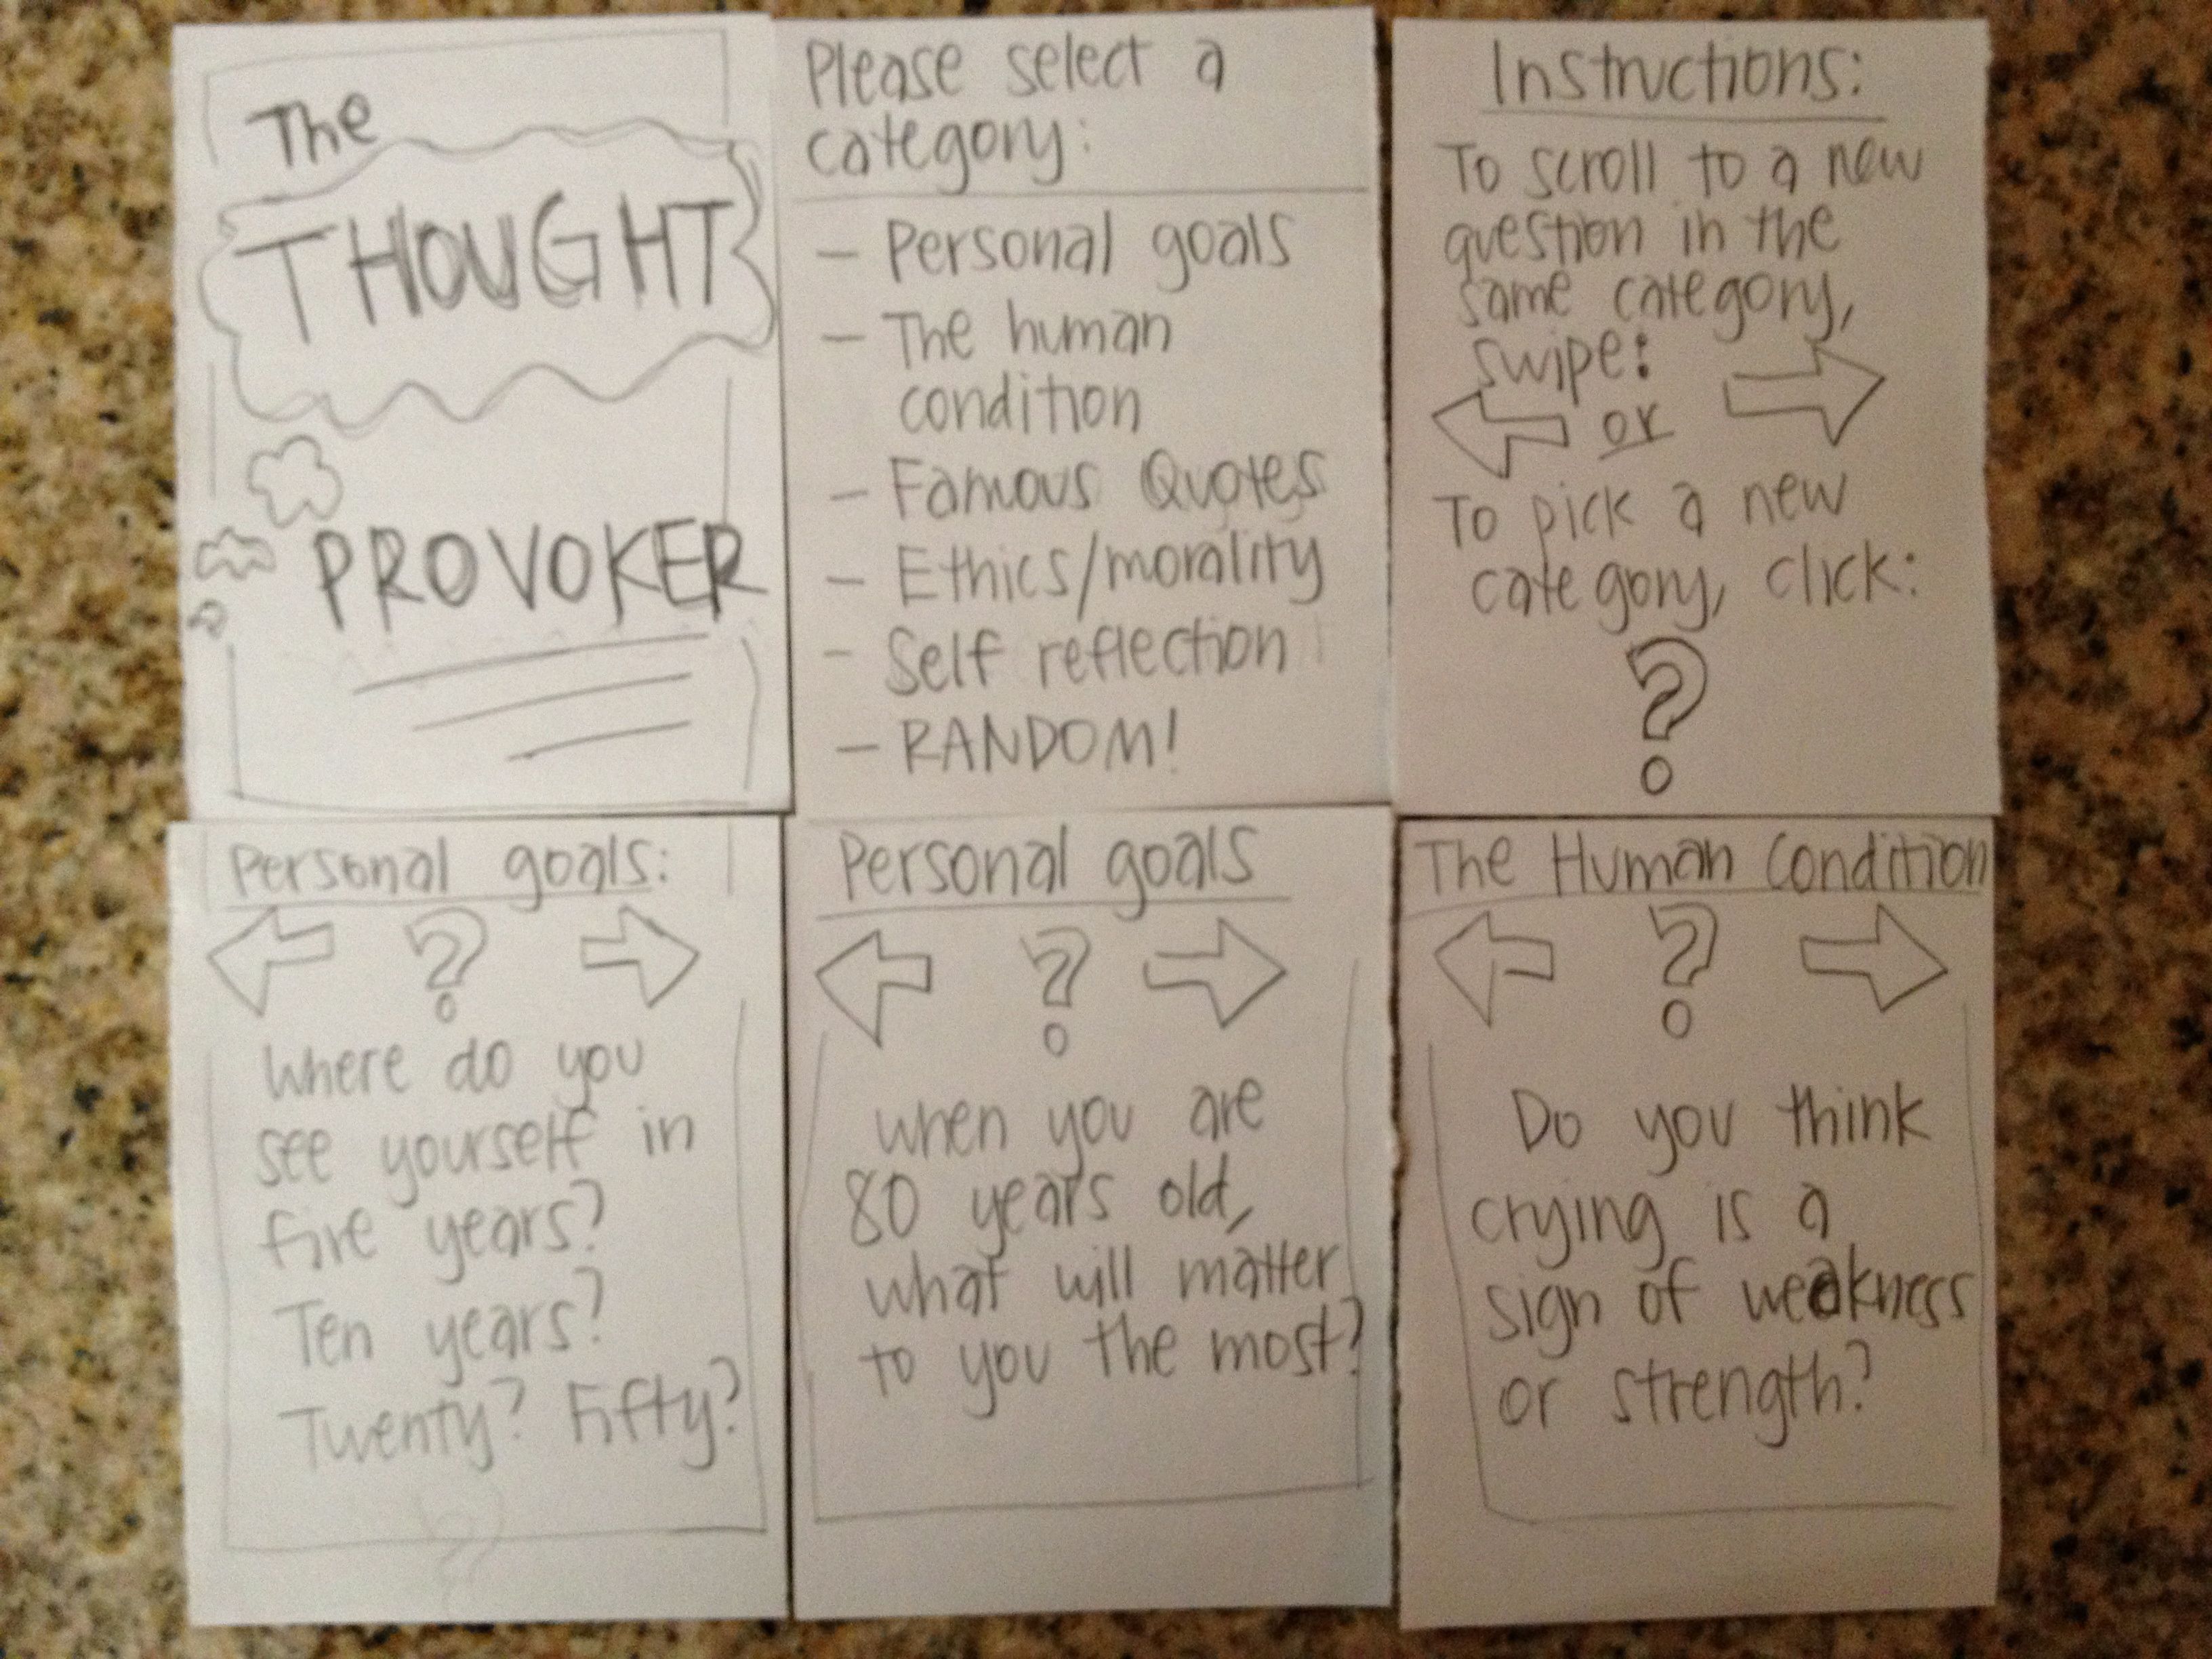 The
THOUGHT
PROVOKER
Please select a
category:
- Personal goals
- The human
condition
- Famous Quotes
- Ethics/morality
- Self reflection
- RANDOM!
Instructions:
To scroll to a new
question in the
same category,
swipe:
or
To pick a new
category, click:
?
Personal goals:
?
Where do you
see yourself in
five years?
Ten years?
Twenty? Fifty?
Personal goals
?
when you are
80 years old,
what will matter
to you the most?
The Human Condition
?
Do you think
crying is a
sign of weakness
or strength?